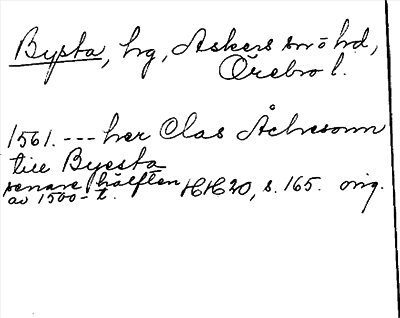 Bysta, hg, Askers sn o hd,
Örebro l.
1561. --- her Clas Åkesonn
till Byesta
senare hälften
av 1500-t. HH 20, s. 165. orig.